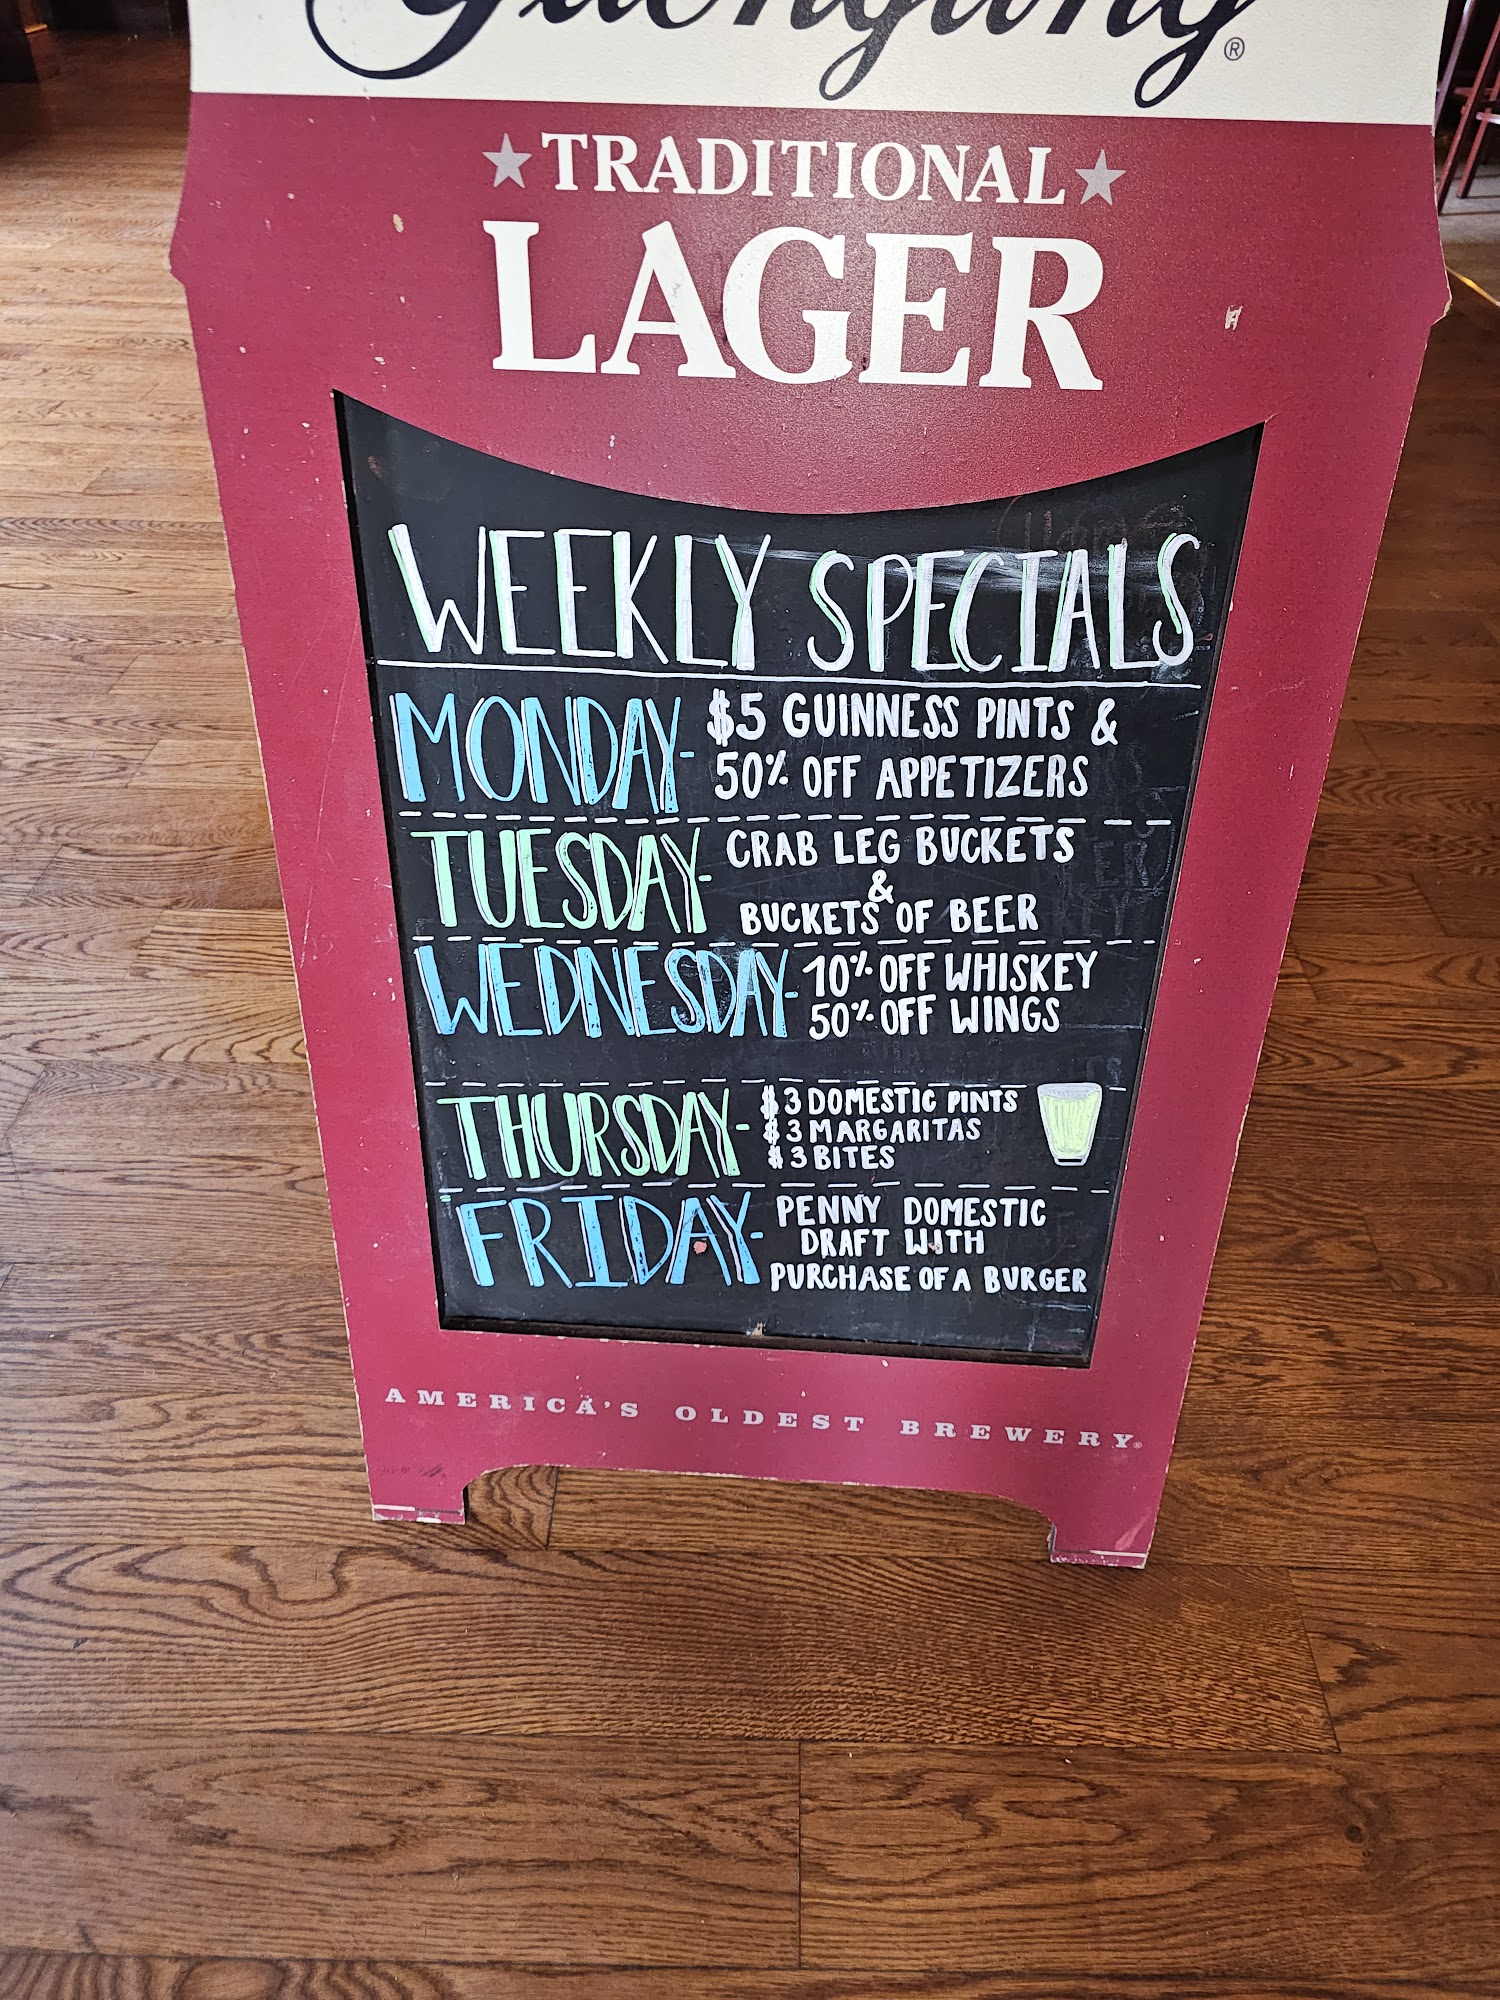 Yuengling®
TRADITIONAL
LAGER
WEEKLY SPECIALS
MONDAY- $5 GUINNESS PINTS &
50% OFF APPETIZERS
TUESDAY- CRAB LEG BUCKETS
&
BUCKETS OF BEER
WEDNESDAY- 10% OFF WHISKEY
50% OFF WINGS
THURSDAY- $3 DOMESTIC PINTS
$3 MARGARITAS
$3 BITES
FRIDAY- PENNY DOMESTIC
DRAFT WITH
PURCHASE OF A BURGER
AMERICA'S OLDEST BREWERY®